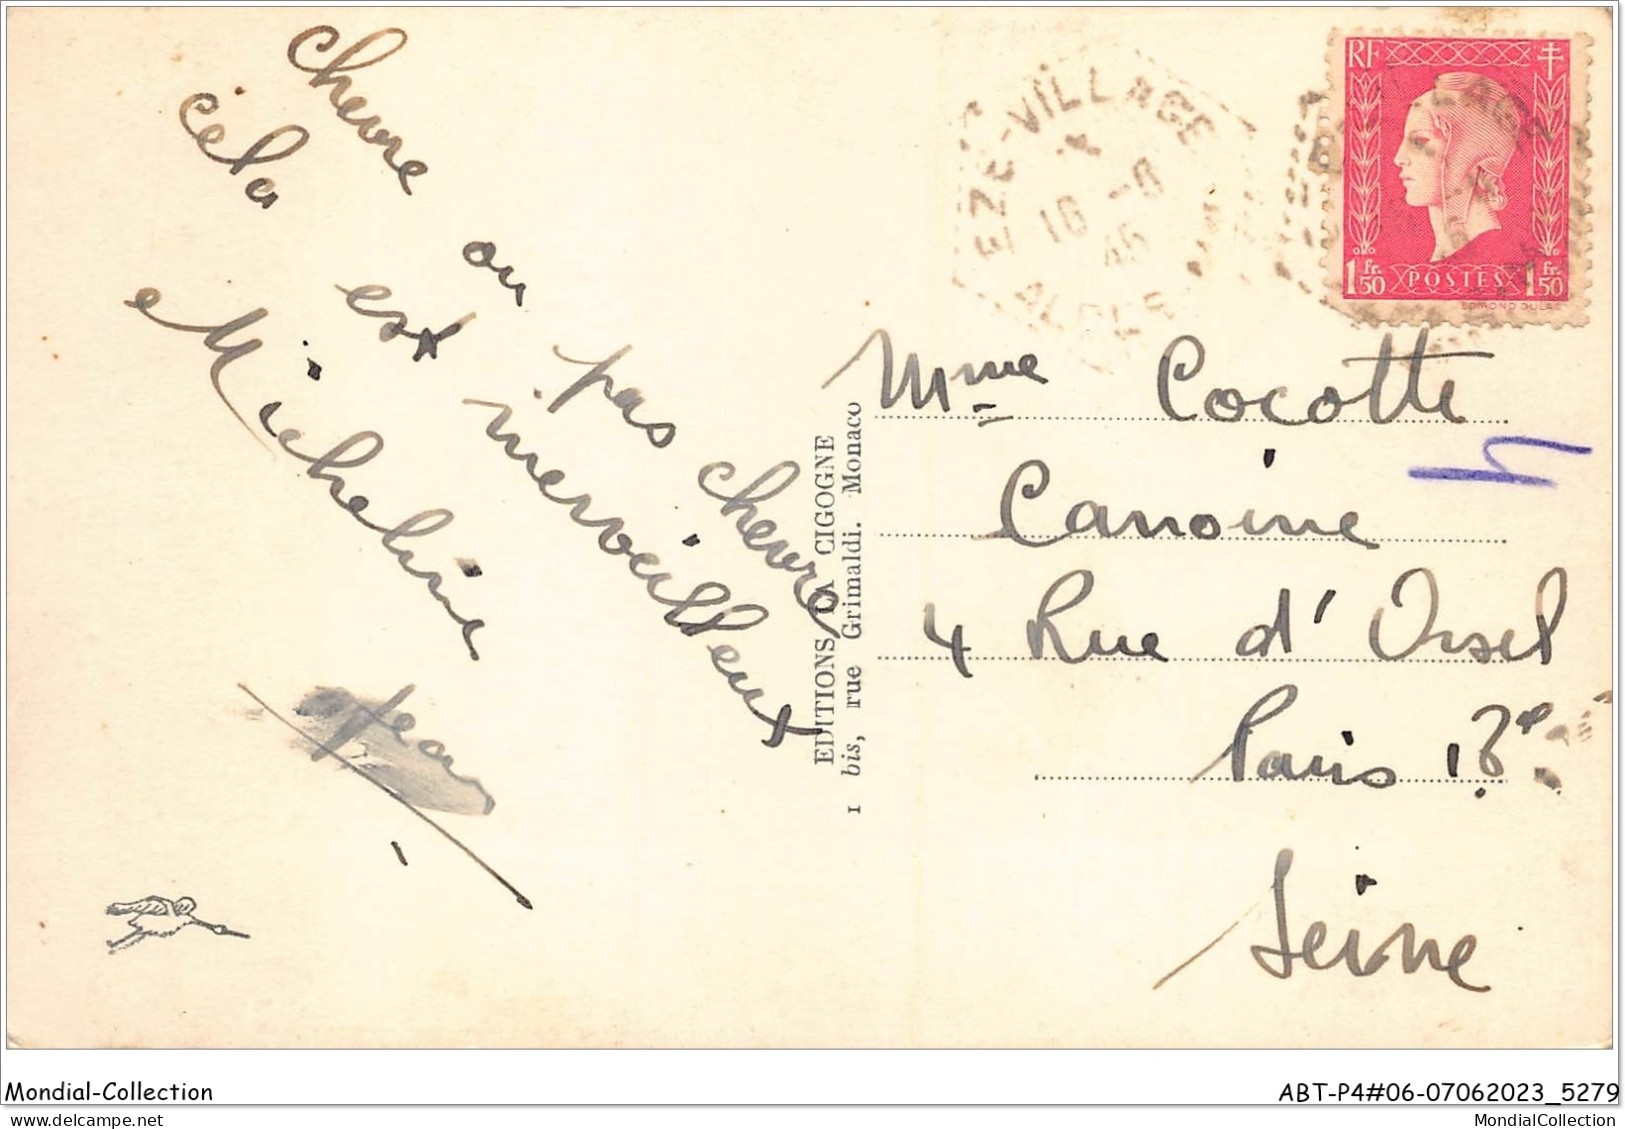 chevre ou pas chevre
cela est merveilleux
Micheline
Jean
EDITIONS LA CIGOGNE
1 bis, rue Grimaldi. Monaco
EZE-VILLAGE
16 -8
45
RF
1 Fr. 50 POSTES 1 Fr. 50
EDMOND DULAC
Mme Cocotte
Canoine
4 Rue d'Orsel
Paris 18e
Seine
Mondial-Collection
ABT-P4#06-07062023_5279
MondialCollection